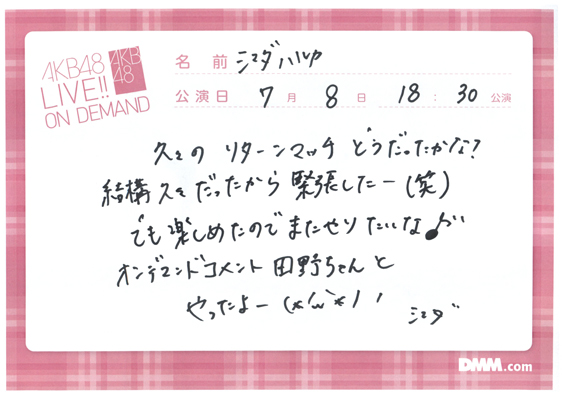 AKB48
LIVE!!
ON DEMAND
AKB
48
名前 シマダハルカ
公演日 7月 8日 18:30 公演
久々の リターンマッチ どうだったかな?
結構久々だったから緊張したー(笑)
でも楽しめたのでまたやりたいな♪
オンデマンドコメント 田野ちゃんと
やったよー (*'ω'*)ノ
シマダ
DMM.com